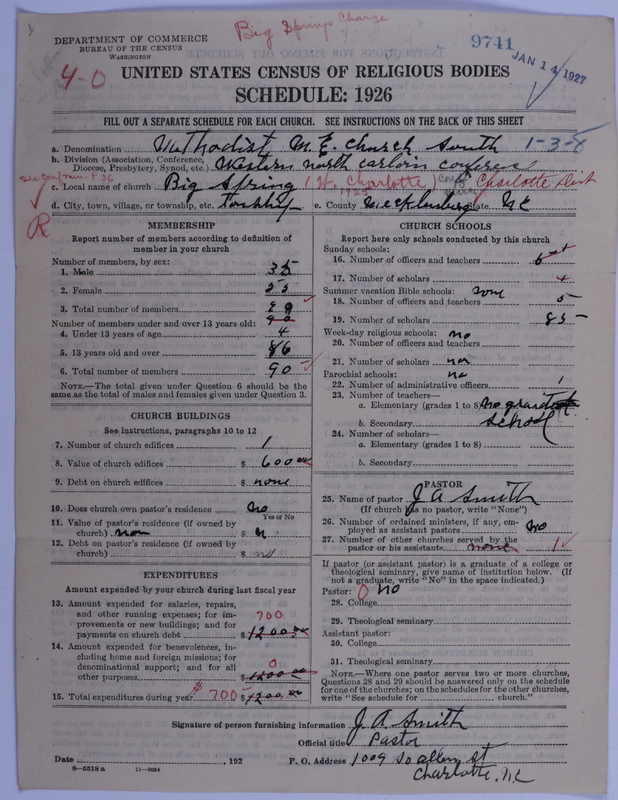 Big Springs Charge
DEPARTMENT OF COMMERCE
BUREAU OF THE CENSUS
WASHINGTON
9741
JAN 14 1927
4-0
UNITED STATES CENSUS OF RELIGIOUS BODIES
SCHEDULE: 1926
FILL OUT A SEPARATE SCHEDULE FOR EACH CHURCH. SEE INSTRUCTIONS ON THE BACK OF THIS SHEET
a. Denomination Methodist M.E. Church South 1-3-8
b. Division (Association, Conference, Diocese, Presbytery, Synod, etc.) Western north carlorin conference
c. Local name of church Big Spring (W. Charlotte) Charlotte Dist
d. City, town, village, or township, etc. e. County Mecklenburg State NC
R
MEMBERSHIP
Report number of members according to definition of
member in your church
Number of members, by sex:
1. Male 35
2. Female 55
3. Total number of members 90
Number of members under and over 13 years old:
4. Under 13 years of age 4
5. 13 years old and over 86
6. Total number of members 90
NOTE.—The total given under Question 6 should be the
same as the total of males and females given under Question 3.
CHURCH BUILDINGS
See instructions, paragraphs 10 to 12
7. Number of church edifices 1
8. Value of church edifices $ 600 00
9. Debt on church edifices $ none
10. Does church own pastor's residence No
Yes or No
11. Value of pastor's residence (if owned by
church) $
12. Debt on pastor's residence (if owned by
church) $
EXPENDITURES
Amount expended by your church during last fiscal year
13. Amount expended for salaries, repairs,
and other running expenses; for im- 700
provements or new buildings; and for
payments on church debt $ 1200 00
14. Amount expended for benevolences, in-
cluding home and foreign missions; for
denominational support; and for all 0
other purposes $ 1200 00
15. Total expenditures during year $ 700 $ 1200.00
CHURCH SCHOOLS
Report here only schools conducted by this church
Sunday schools:
16. Number of officers and teachers 6
17. Number of scholars
Summer vacation Bible schools: none
18. Number of officers and teachers 5
19. Number of scholars 85
Week-day religious schools: no
20. Number of officers and teachers
21. Number of scholars
Parochial schools: no
22. Number of administrative officers 1
23. Number of teachers—
a. Elementary (grades 1 to 8)
b. Secondary school
24. Number of scholars—
a. Elementary (grades 1 to 8)
b. Secondary
PASTOR
25. Name of pastor J A Smith
(If church has no pastor, write "None")
26. Number of ordained ministers, if any, em-
ployed as assistant pastors No
27. Number of other churches served by the
pastor or his assistants none 1
If pastor (or assistant pastor) is a graduate of a college or
theological seminary, give name of institution below. (If
not a graduate, write "No" in the space indicated.)
Pastor: 0 no
28. College
29. Theological seminary
Assistant pastor:
30. College
31. Theological seminary
NOTE.—Where one pastor serves two or more churches,
Questions 28 and 29 should be answered only on the schedule
for one of the churches; on the schedules for the other churches,
write "See schedule for church."
Signature of person furnishing information J A Smith
Official title Pastor
Date , 192 P. O. Address 1009 So allen St
Charlotte, NC
8—5518 a 11—8664